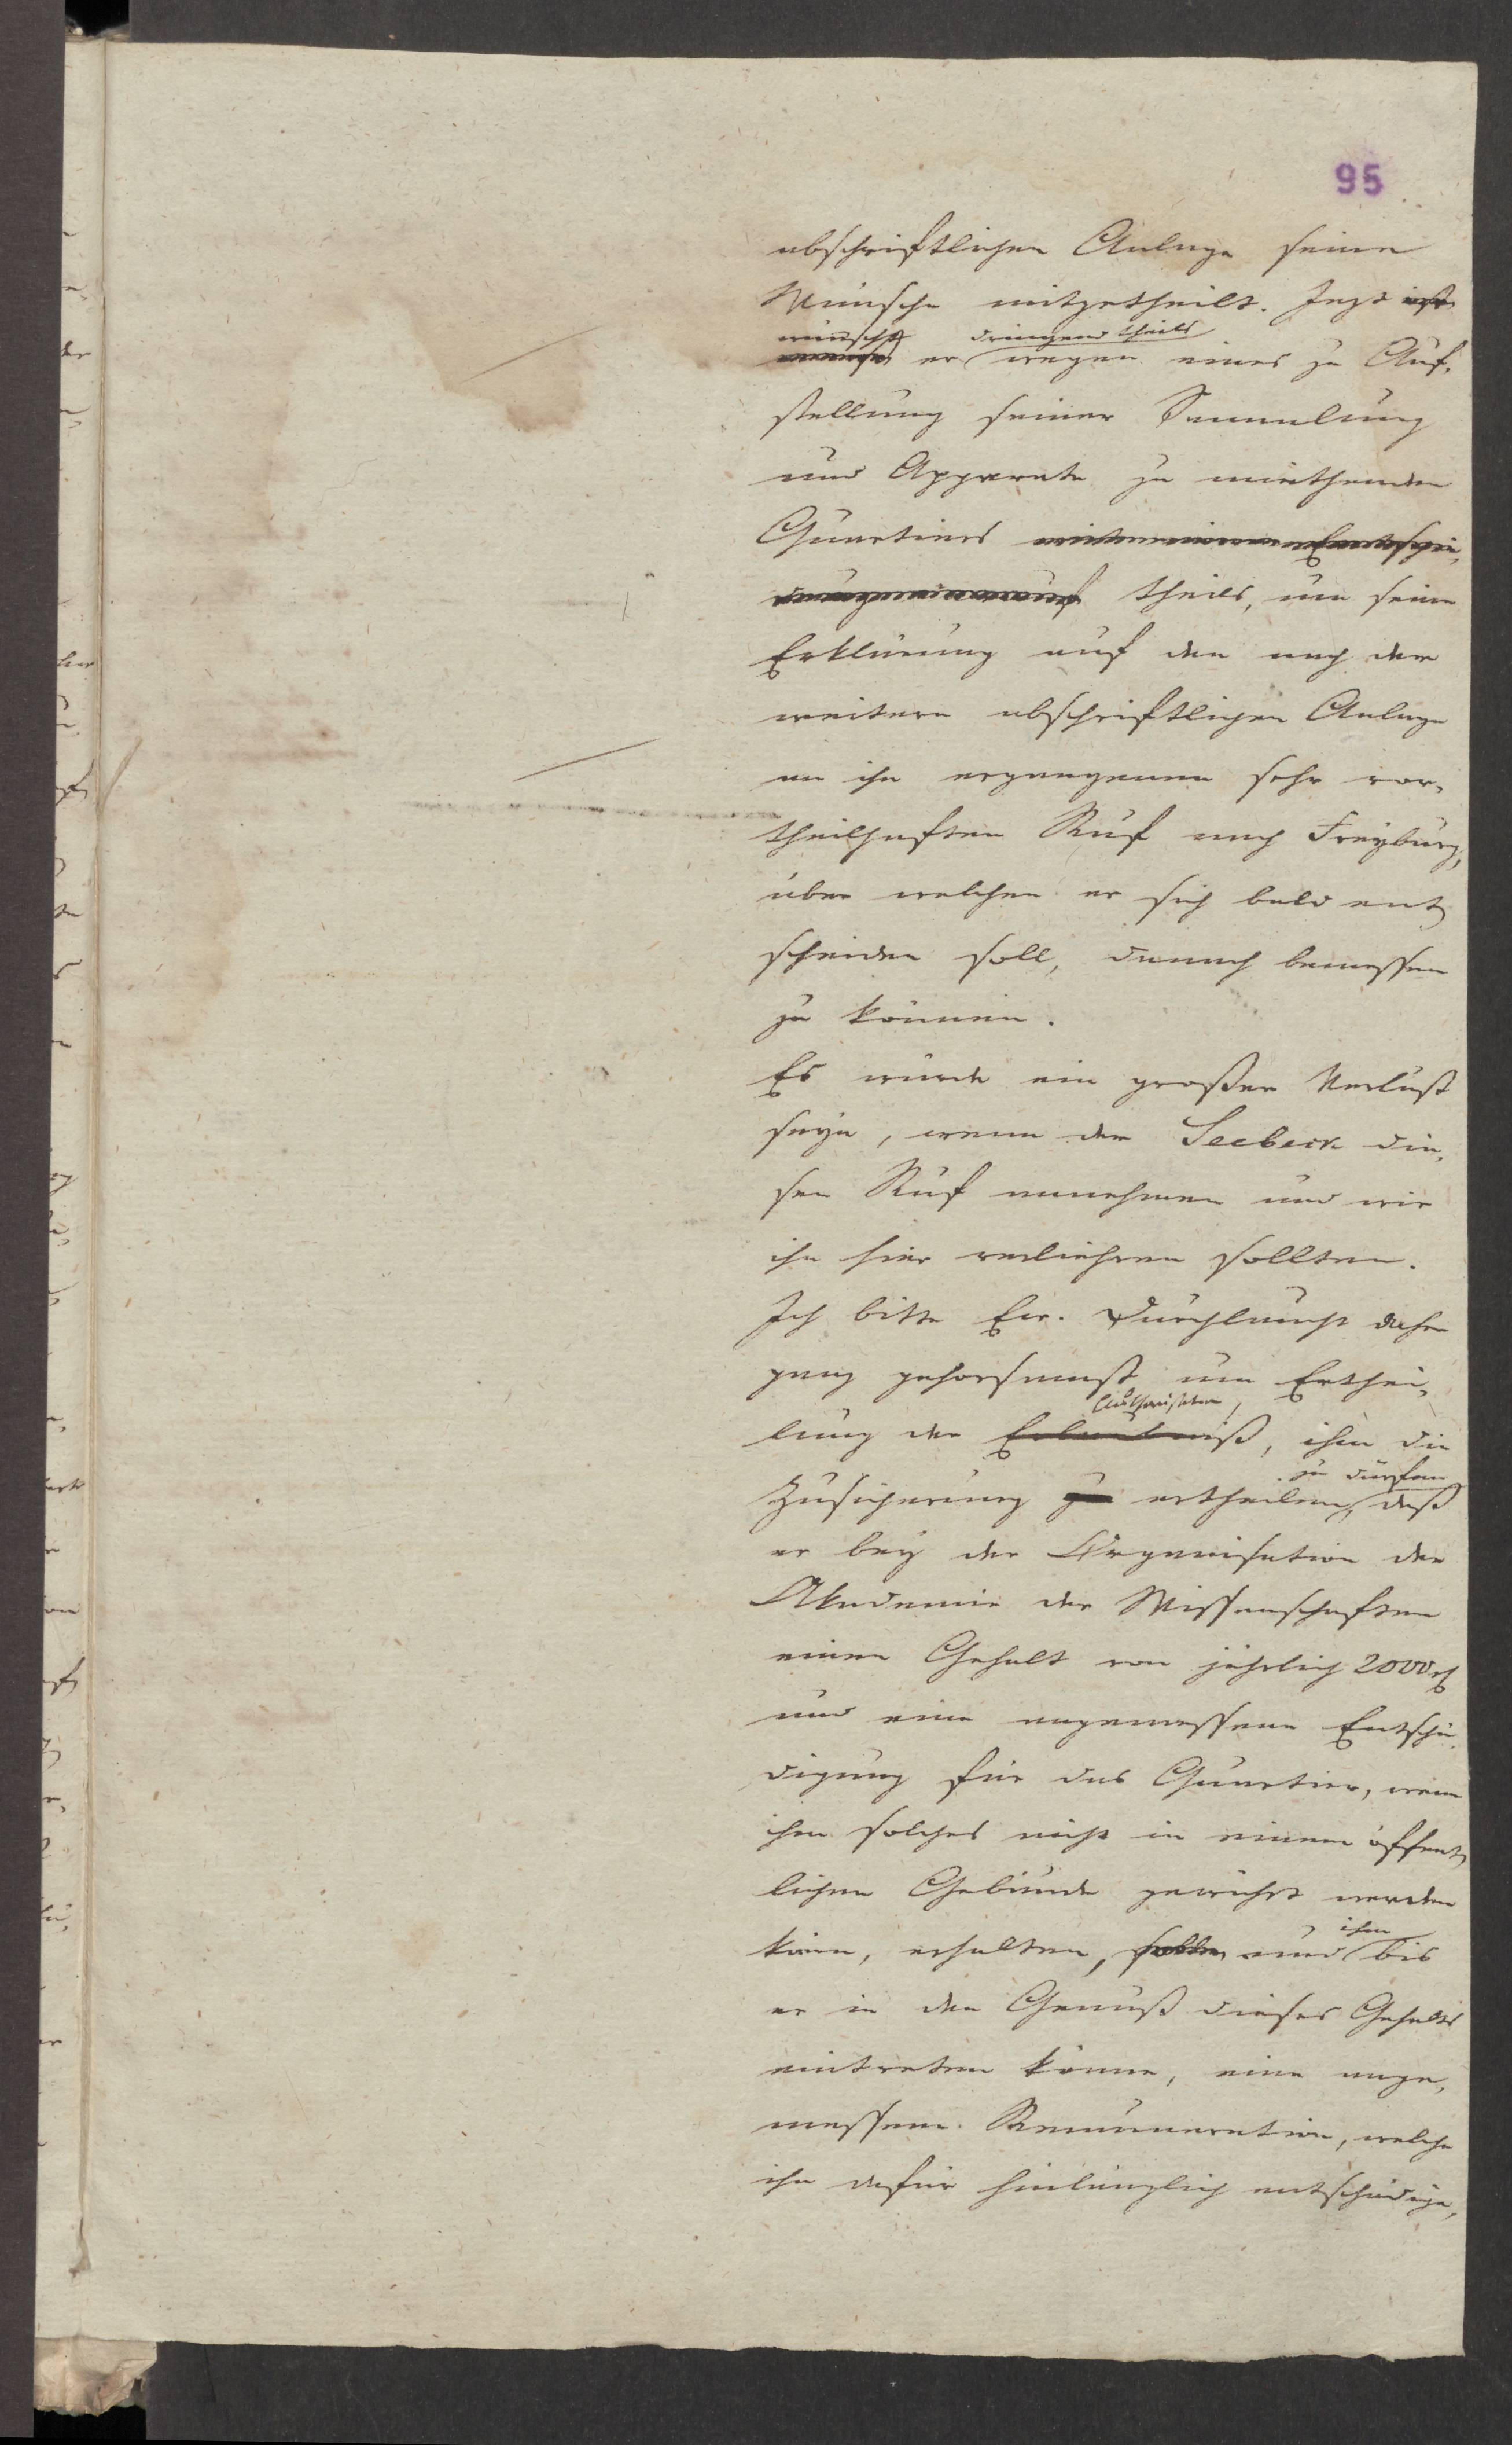 95
abschriftlichen Anlage seine
Wünsche mitgetheilt. Jezt ist
wünscht dringend theils
er wegen eines zu Auf-
stellung seiner Sammlung
und Apparate zu miethenden
Quartiers
theils, um seine
Erklärung auf den nach der
weitern abschriftlichen Anlage
an ihn ergangenen sehr vor-
theilhaften Ruf nach Freyburg,
über welchen er sich bald ent-
scheiden soll, danach bemessen
zu können.
Es würde ein großer Verlust
seyn, wenn der Seebeck die-
sen Ruf annehmen und wir
ihn hier verliehren sollten.
Ich bitte Ew. Durchlaucht daher
ganz gehorsamst um Erthei-
Authorisation,
lung der Erlaubniß, ihm die
zu dürfen
Zusicherung zu ertheilen, daß
er bey der Organisation der
Akademie der Wissenschaften
einen Gehalt von jährlich 2000 rt
und eine angemessene Entschä-
digung für das Quartier, wenn
ihm solches nicht in einem öffent-
lichen Gebäude gewährt werden
ihm
kann, erhalten, solle und bis
er in den Genuß dieses Gehalts
eintreten könne, eine ange-
messene Remuneration, welche
ihn dafür hinlänglich entschädige,